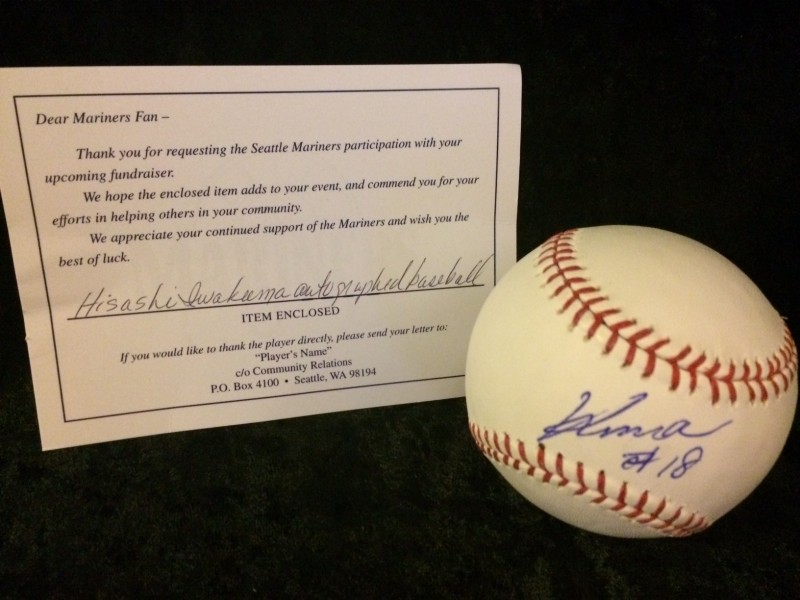 Dear Mariners Fan –
Thank you for requesting the Seattle Mariners participation with your
upcoming fundraiser.
We hope the enclosed item adds to your event, and commend you for your
efforts in helping others in your community.
We appreciate your continued support of the Mariners and wish you the
best of luck.
Hisashi Iwakuma autographed baseball
ITEM ENCLOSED
If you would like to thank the player directly, please send your letter to:
"Player's Name"
c/o Community Relations
P.O. Box 4100 • Seattle, WA 98194
#18